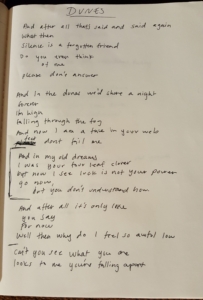 DUNES
And after all that's said and said again
what then
silence is a forgotten friend
Do you ever think
of me
please don't answer
And in the dunes we'd share a night
forever
I'm high
falling through the fog
And now I am a take in your web
don't fail me
And in my old dreams
I was your four leaf clover
But now I see luck is not your power
go now,
but you don't understand how
And after all it's only late
you say
for now
Well then why do I feel so awful low
can't you see what you are
looks to me you're falling apart